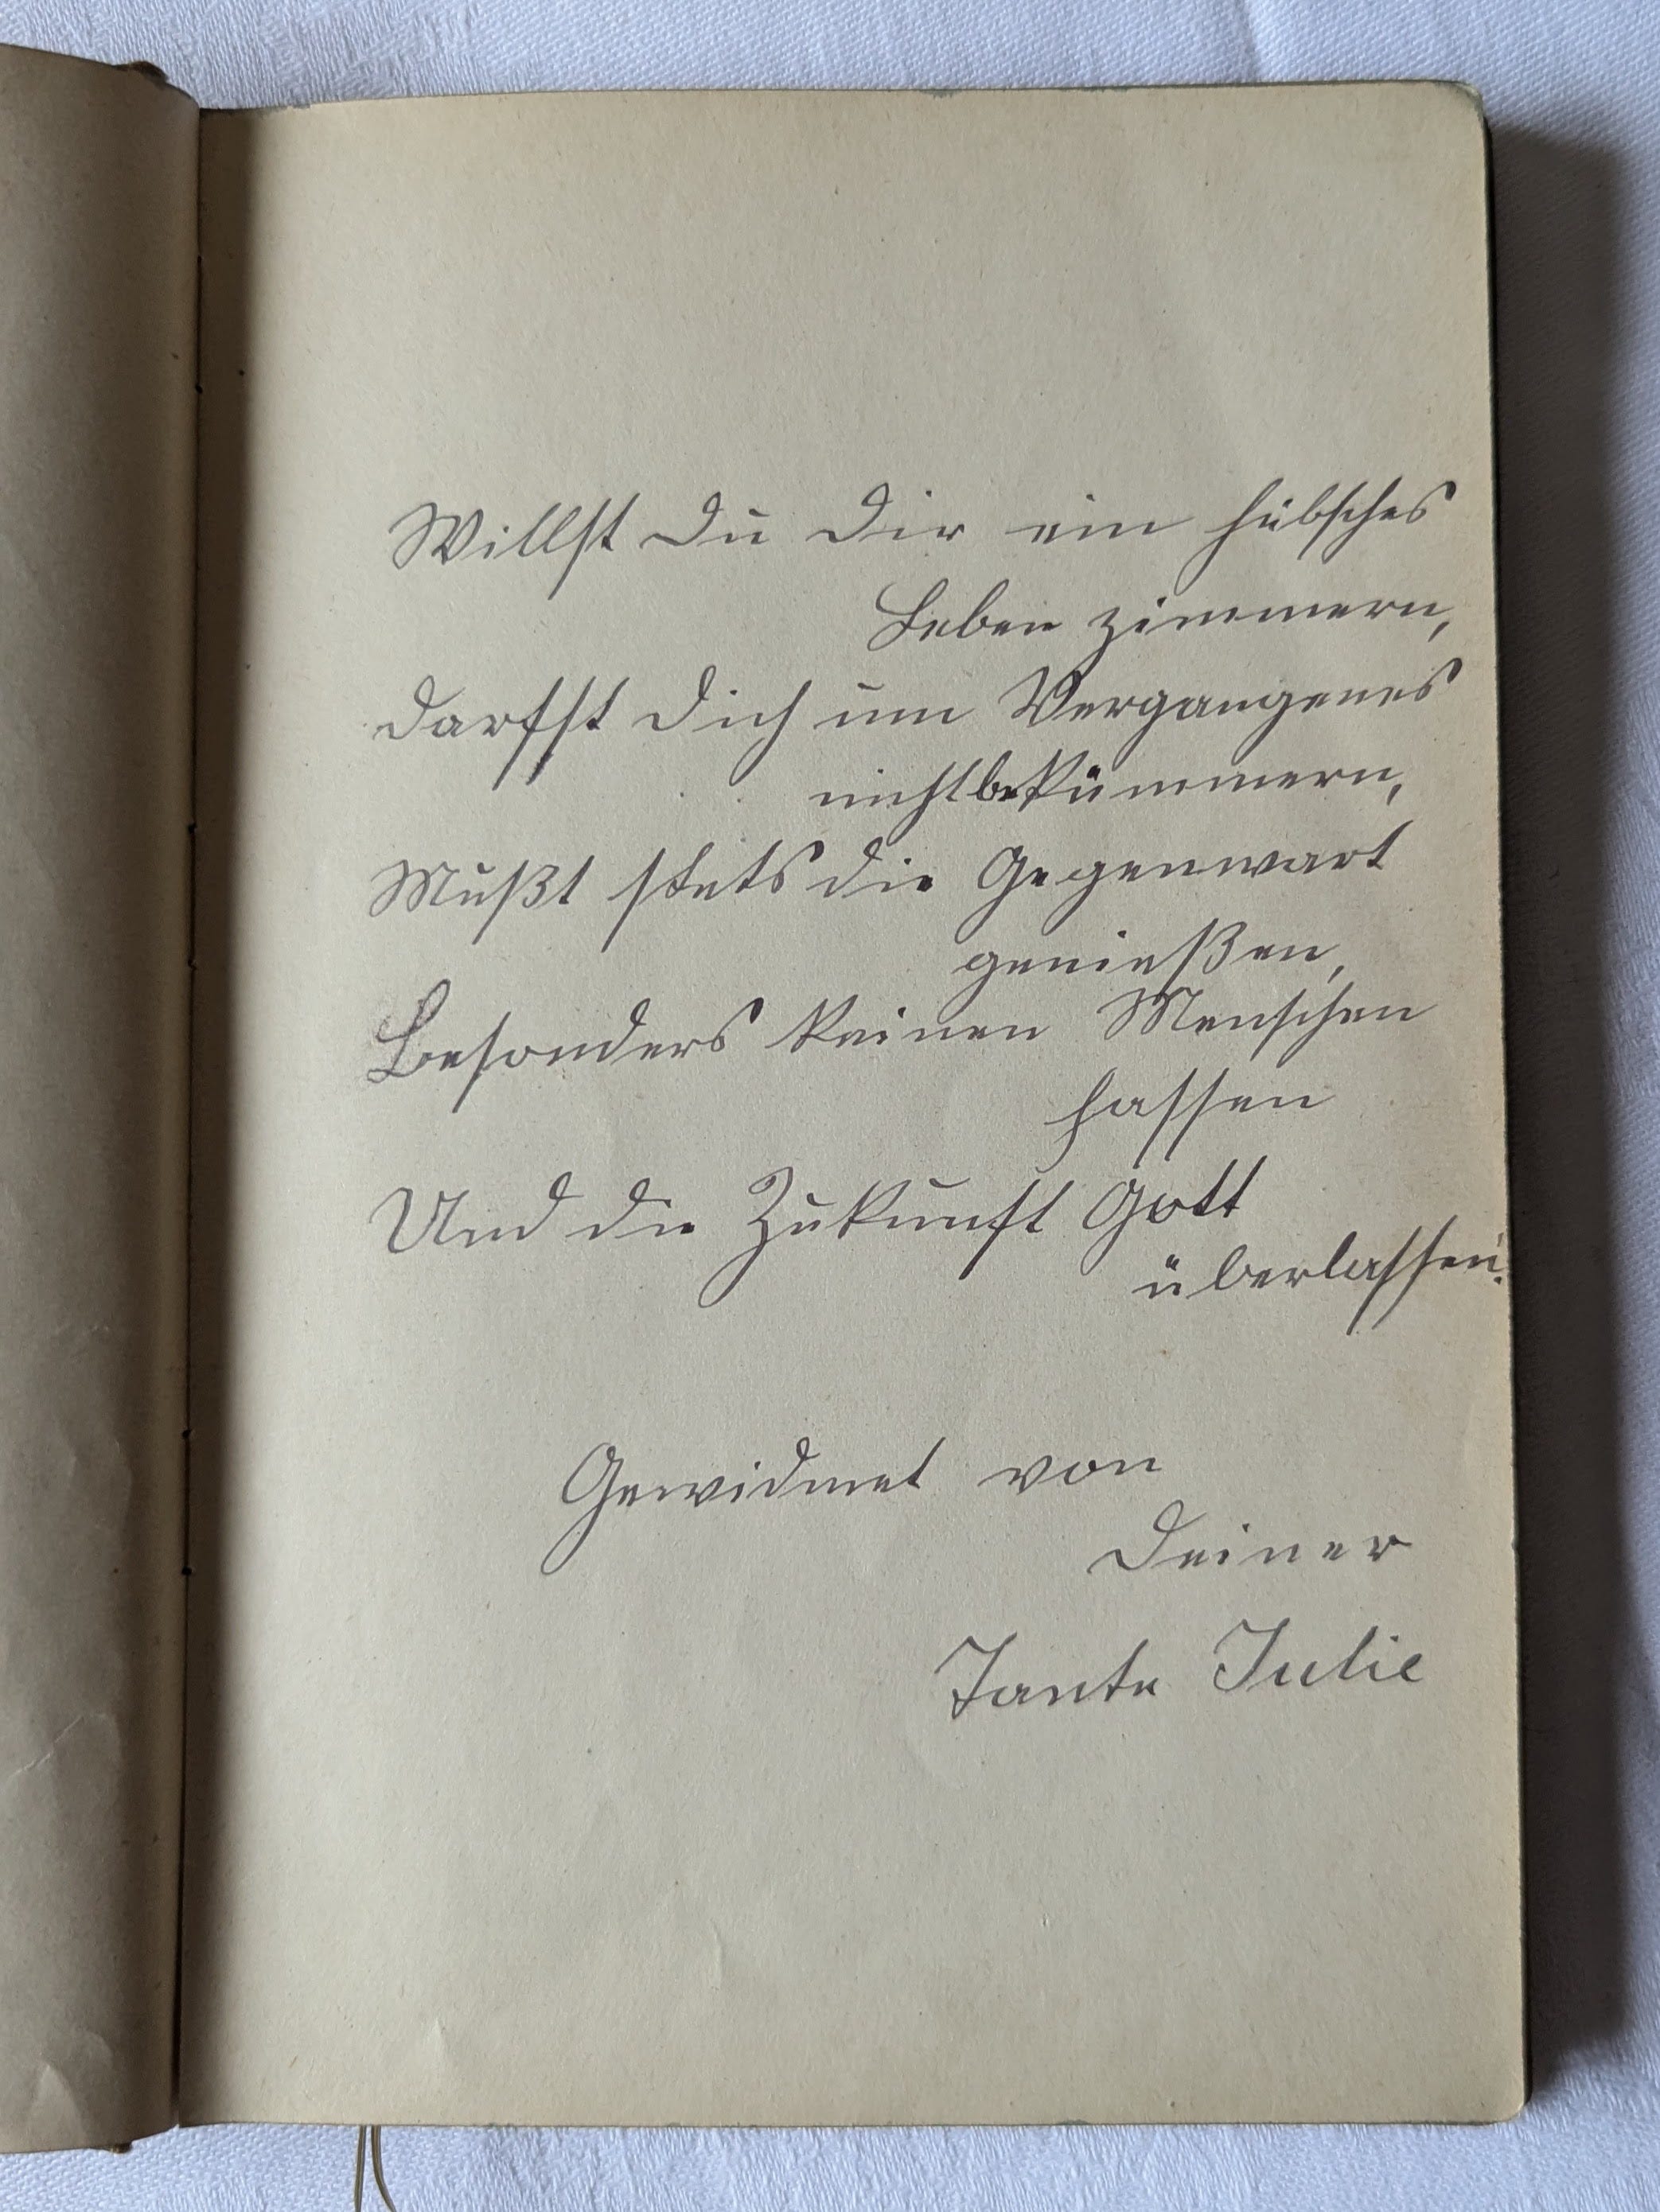 Willst Du Dir ein hübsches
Leben zimmern,
Darfst Dich um Vergangenes
nicht bekümmern,
Mußt stets die Gegenwart
genießen,
Besonders keinen Menschen
hassen
Und die Zukunft Gott
überlassen.
Gewidmet von
Deiner
Tante Julie